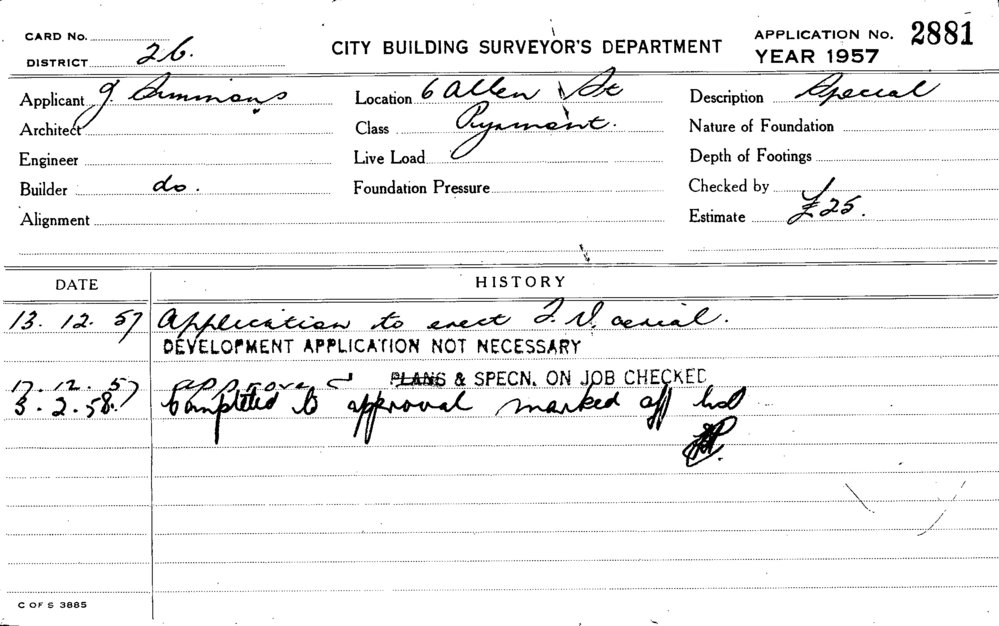 CARD No.
DISTRICT 26.
CITY BUILDING SURVEYOR'S DEPARTMENT
APPLICATION No. 2881
YEAR 1957
Applicant J. Simmons
Location 6 Allen St
Description Special
Architect
Class Pyrmont.
Nature of Foundation
Engineer
Live Load
Depth of Footings
Builder do.
Foundation Pressure
Checked by
Alignment
Estimate £25.
DATE HISTORY
13. 12. 57 Application to erect T. V. aerial.
DEVELOPMENT APPLICATION NOT NECESSARY
17. 12. 57 approved PLANS & SPECN. ON JOB CHECKED
3. 2. 58. Completed to approval marked off
C OF S 3885